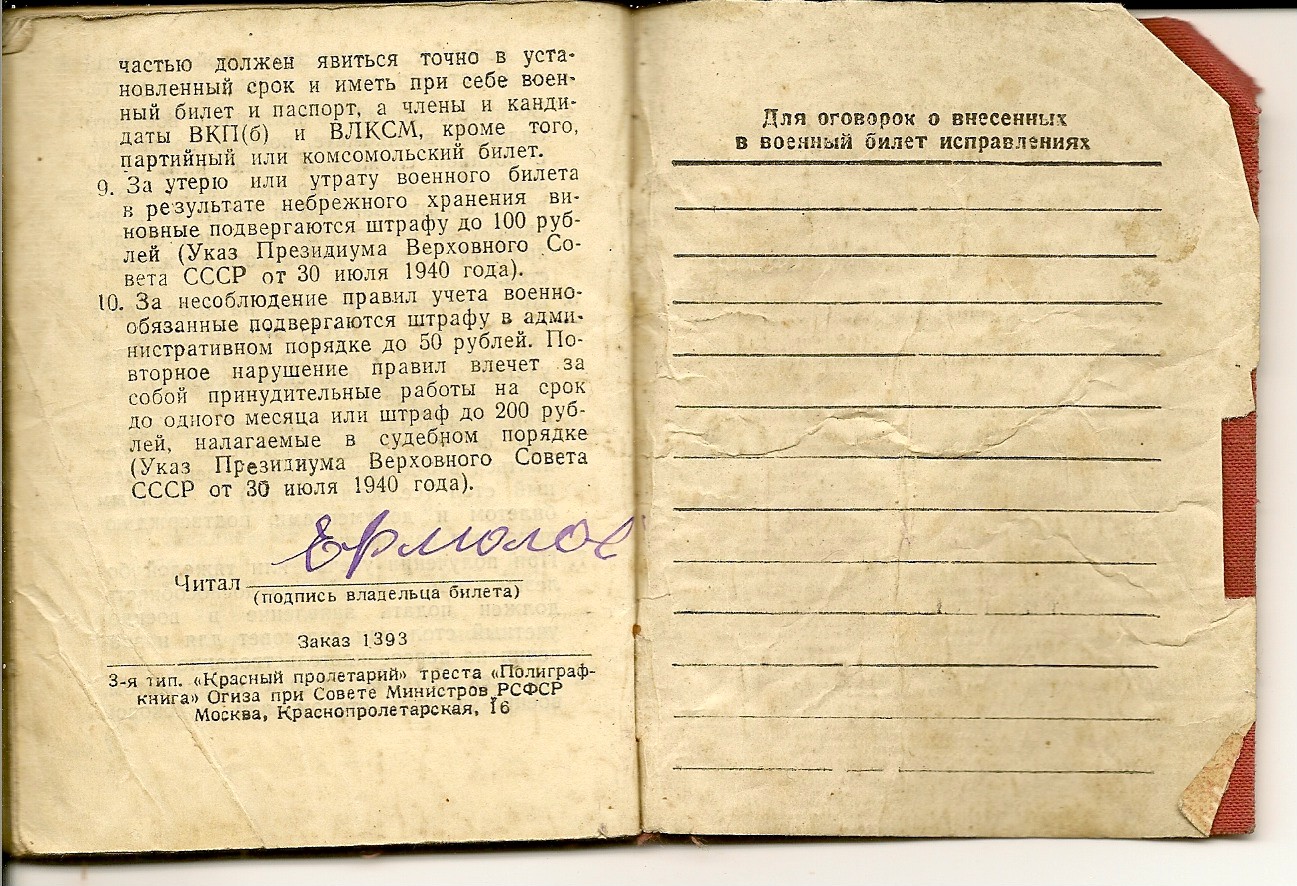 частью должен явиться точно в уста-
новленный срок и иметь при себе воен-
ный билет и паспорт, а члены и канди-
даты ВКП(б) и ВЛКСМ, кроме того,
партийный или комсомольский билет.
9. За утерю или утрату военного билета
в результате небрежного хранения ви-
новные подвергаются штрафу до 100 руб-
лей (Указ Президиума Верховного Со-
вета СССР от 30 июля 1940 года).
10. За несоблюдение правил учета военно-
обязанные подвергаются штрафу в адми-
нистративном порядке до 50 рублей. По-
вторное нарушение правил влечет за
собой принудительные работы на срок
до одного месяца или штраф до 200 руб-
лей, налагаемые в судебном порядке
(Указ Президиума Верховного Совета
СССР от 30 июля 1940 года).
Ермолов
Читал
(подпись владельца билета)
Заказ 1393
3-я тип. «Красный пролетарий» треста «Полиграф-
книга» Огиза при Совете Министров РСФСР
Москва, Краснопролетарская, 16
Для оговорок о внесенных
в военный билет исправлениях